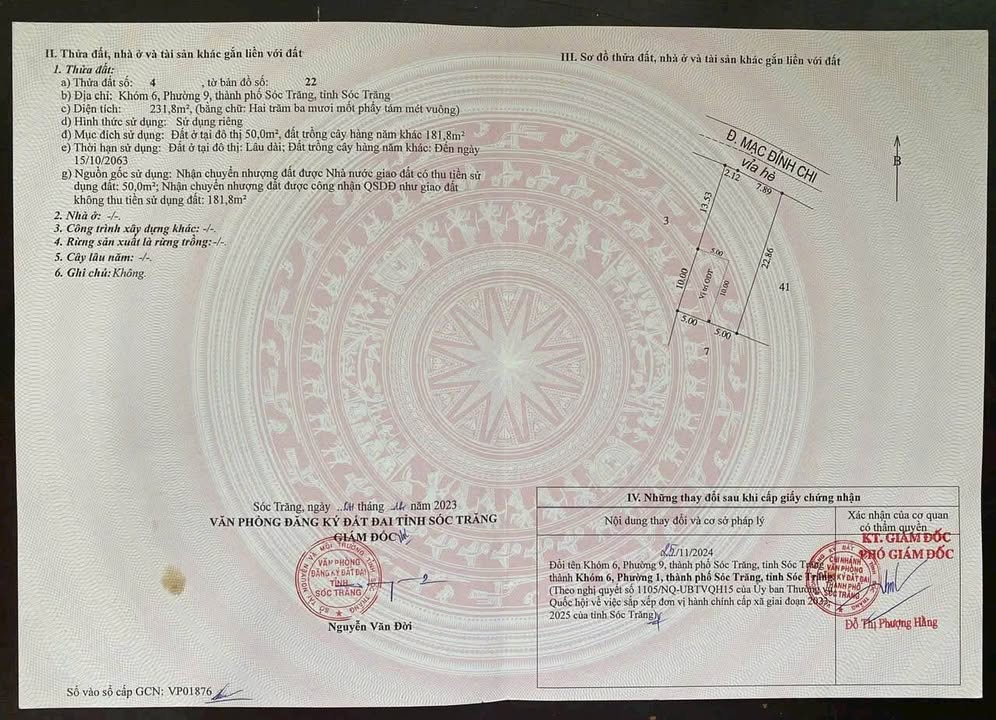 II. Thửa đất, nhà ở và tài sản khác gắn liền với đất
1. Thửa đất:
a) Thửa đất số: 4 , tờ bản đồ số: 22
b) Địa chỉ: Khóm 6, Phường 9, thành phố Sóc Trăng, tỉnh Sóc Trăng
c) Diện tích: 231,8m², (bằng chữ: Hai trăm ba mươi mốt phẩy tám mét vuông)
d) Hình thức sử dụng: Sử dụng riêng
đ) Mục đích sử dụng: Đất ở tại đô thị 50,0m², đất trồng cây hàng năm khác 181,8m²
e) Thời hạn sử dụng: Đất ở tại đô thị: Lâu dài; Đất trồng cây hàng năm khác: Đến ngày
15/10/2063
g) Nguồn gốc sử dụng: Nhận chuyển nhượng đất được Nhà nước giao đất có thu tiền sử
dụng đất: 50,0m²; Nhận chuyển nhượng đất được công nhận QSDĐ như giao đất
không thu tiền sử dụng đất: 181,8m²
2. Nhà ở: -/-.
3. Công trình xây dựng khác: -/-.
4. Rừng sản xuất là rừng trồng:-/-.
5. Cây lâu năm: -/-.
6. Ghi chú: Không.
Sóc Trăng, ngày tháng 12 năm 2023
VĂN PHÒNG ĐĂNG KÝ ĐẤT ĐAI TỈNH SÓC TRĂNG
GIÁM ĐỐC
SỞ TÀI NGUYÊN VÀ MÔI TRƯỜNG TỈNH SÓC TRĂNG
VĂN PHÒNG
ĐĂNG KÝ ĐẤT ĐAI
TỈNH
SÓC TRĂNG
Nguyễn Văn Đời
Số vào sổ cấp GCN: VP01876
III. Sơ đồ thửa đất, nhà ở và tài sản khác gắn liền với đất
Đ. MẠC ĐĨNH CHI
vỉa hè
B
2.12
7.89
13.53
3
22.86
5.00
10.00
Vị trí ODT
10.00
41
5.00
5.00
7
IV. Những thay đổi sau khi cấp giấy chứng nhận
Nội dung thay đổi và cơ sở pháp lý
Xác nhận của cơ quan
có thẩm quyền
25/11/2024
Đổi tên Khóm 6, Phường 9, thành phố Sóc Trăng, tỉnh Sóc Trăng
thành Khóm 6, Phường 1, thành phố Sóc Trăng, tỉnh Sóc Trăng
(Theo nghị quyết số 1105/NQ-UBTVQH15 của Ủy ban Thường
Quốc hội về việc sắp xếp đơn vị hành chính cấp xã giai đoạn 2023
2025 của tỉnh Sóc Trăng)
KT. GIÁM ĐỐC
PHÓ GIÁM ĐỐC
CHI NHÁNH
VĂN PHÒNG
ĐĂNG KÝ ĐẤT ĐAI
THÀNH PHỐ
SÓC TRĂNG
Đỗ Thị Phượng Hằng